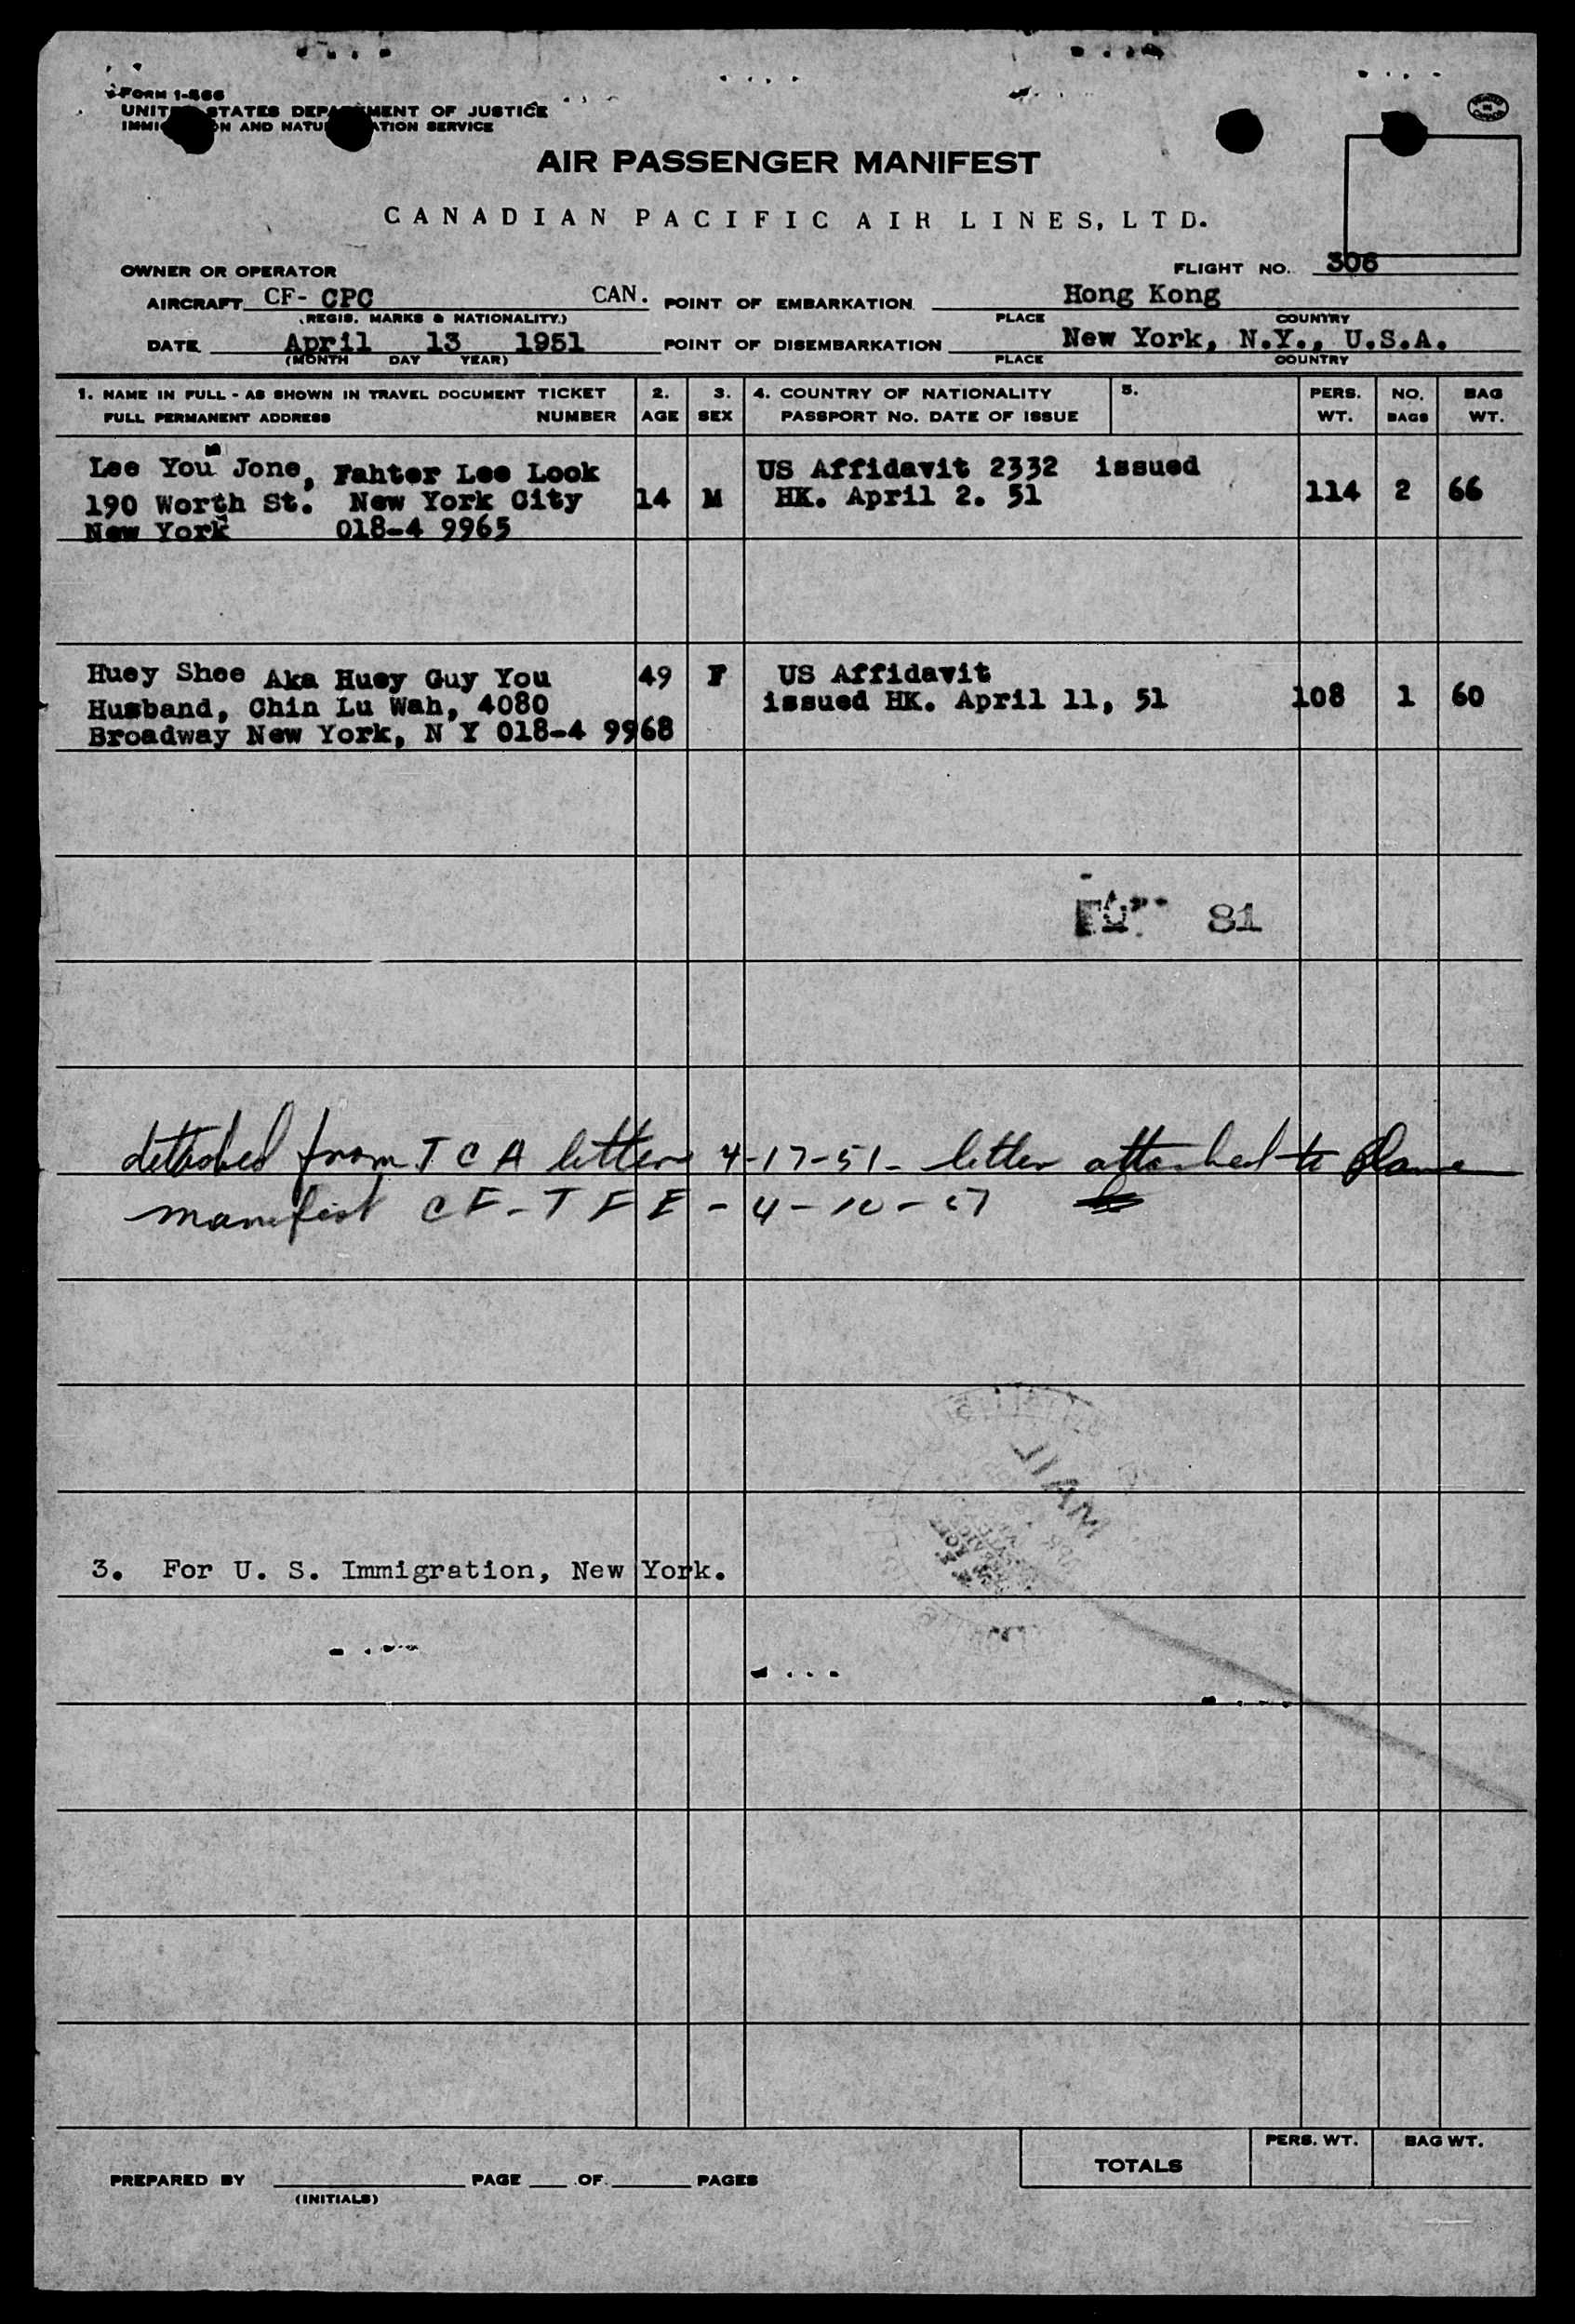 FORM I-466
UNITED STATES DEPARTMENT OF JUSTICE
IMMIGRATION AND NATURALIZATION SERVICE
PRINTED IN CANADA
AIR PASSENGER MANIFEST
CANADIAN PACIFIC AIR LINES, LTD.
OWNER OR OPERATOR FLIGHT NO. 306
AIRCRAFT CF- CPC CAN. POINT OF EMBARKATION Hong Kong
(REGIS. MARKS & NATIONALITY) PLACE COUNTRY
DATE April 13 1951 POINT OF DISEMBARKATION New York, N.Y., U.S.A.
(MONTH DAY YEAR) PLACE COUNTRY
1. NAME IN FULL - AS SHOWN IN TRAVEL DOCUMENT TICKET 2. 3. 4. COUNTRY OF NATIONALITY 5. PERS. NO. BAG
FULL PERMANENT ADDRESS NUMBER AGE SEX PASSPORT No. DATE OF ISSUE WT. BAGS WT.
Lee You Jone, Fahter Lee Look US Affidavit 2332 issued
190 Worth St. New York City 14 M HK. April 2. 51 114 2 66
New York 018-4 9965
Huey Shee Aka Huey Guy You 49 F US Affidavit
Husband, Chin Lu Wah, 4080 issued HK. April 11, 51 108 1 60
Broadway New York, N Y 018-4 9968
81
detached from T C A letter 4-17-51- letter attached to Plane
manifest CF-TFE-4-10-
MAIL
3. For U. S. Immigration, New York.
PERS. WT. BAG WT.
TOTALS
PREPARED BY PAGE OF PAGES
(INITIALS)